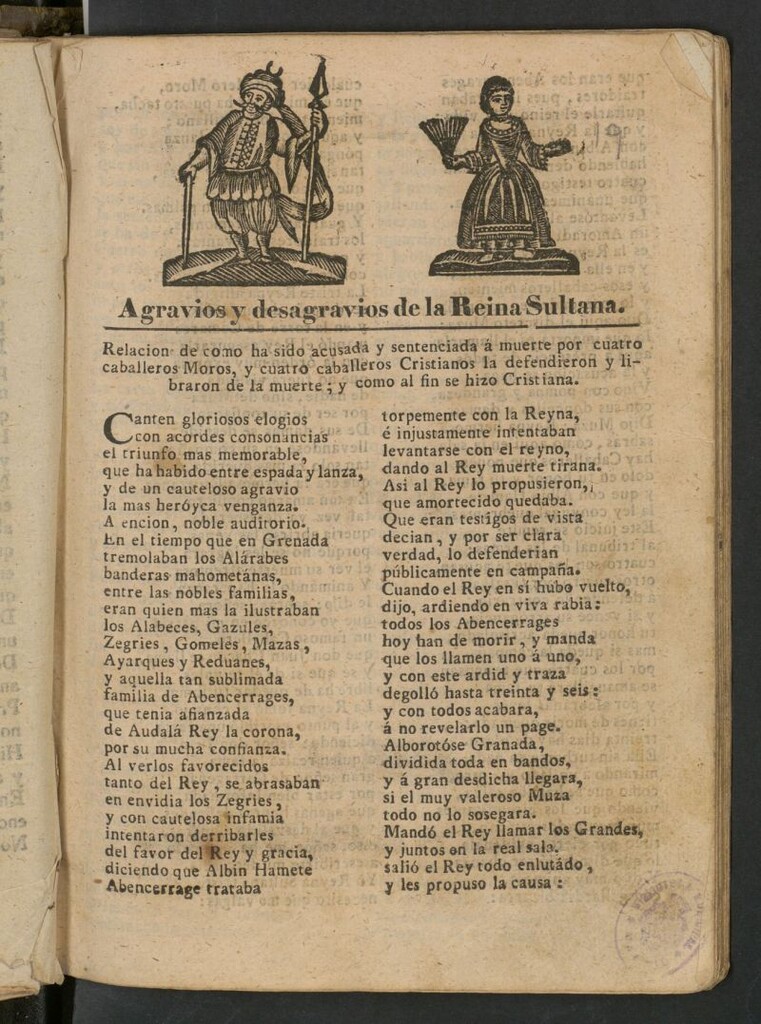 Agravios y desagravios de la Reina Sultana.
Relacion de como ha sido acusada y sentenciada á muerte por cuatro
caballeros Moros, y cuatro caballeros Cristianos la defendieron y li-
braron de la muerte; y como al fin se hizo Cristiana.
Canten gloriosos elogios
con acordes consonancias
el triunfo mas memorable,
que ha habido entre espada y lanza,
y de un cauteloso agravio
la mas heróyca venganza.
A encion, noble auditorio.
En el tiempo que en Grenada
tremolaban los Alárabes
banderas mahometánas,
entre las nobles familias,
eran quien mas la ilustraban
los Alabeces, Gazules,
Zegries, Gomeles, Mazas,
Ayarques y Reduanes,
y aquella tan sublimada
familia de Abencerrages,
que tenia afianzada
de Audalá Rey la corona,
por su mucha confianza.
Al verlos favorecidos
tanto del Rey, se abrasaban
en envidia los Zegries,
y con cautelosa infamia
intentaron derribarles
del favor del Rey y gracia,
diciendo que Albin Hamete
Abencerrage trataba
torpemente con la Reyna,
é injustamente intentaban
levantarse con el reyno,
dando al Rey muerte tirana.
Asi al Rey lo propusieron,
que amortecido quedaba.
Que eran testigos de vista
decian, y por ser clara
verdad, lo defenderian
públicamente en campaña.
Cuando el Rey en sí hubo vuelto,
dijo, ardiendo en viva rabia:
todos los Abencerrages
hoy han de morir, y manda
que los llamen uno á uno,
y con este ardid y traza
degolló hasta treinta y seis:
y con todos acabara,
á no revelarlo un page.
Alborotóse Granada,
dividida toda en bandos,
y á gran desdicha llegara,
si el muy valeroso Muza
todo no lo sosegara.
Mandó el Rey llamar los Grandes,
y juntos en la real sala,
salió el Rey todo enlutádo,
y les propuso la causa: